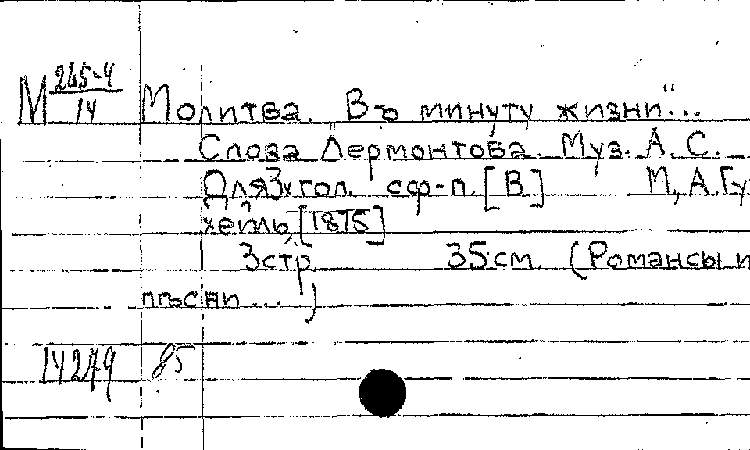 М 245-4/14 Молитва. Въ минуту жизни"...
Слова Лермонтова. Муз. А. С.
Для 3х гол. с ф-п. [В.] М, А. Гу
хейль, [1875]
3 стр. 35 см. (Романсы и
пѣсни ... )
14249 85